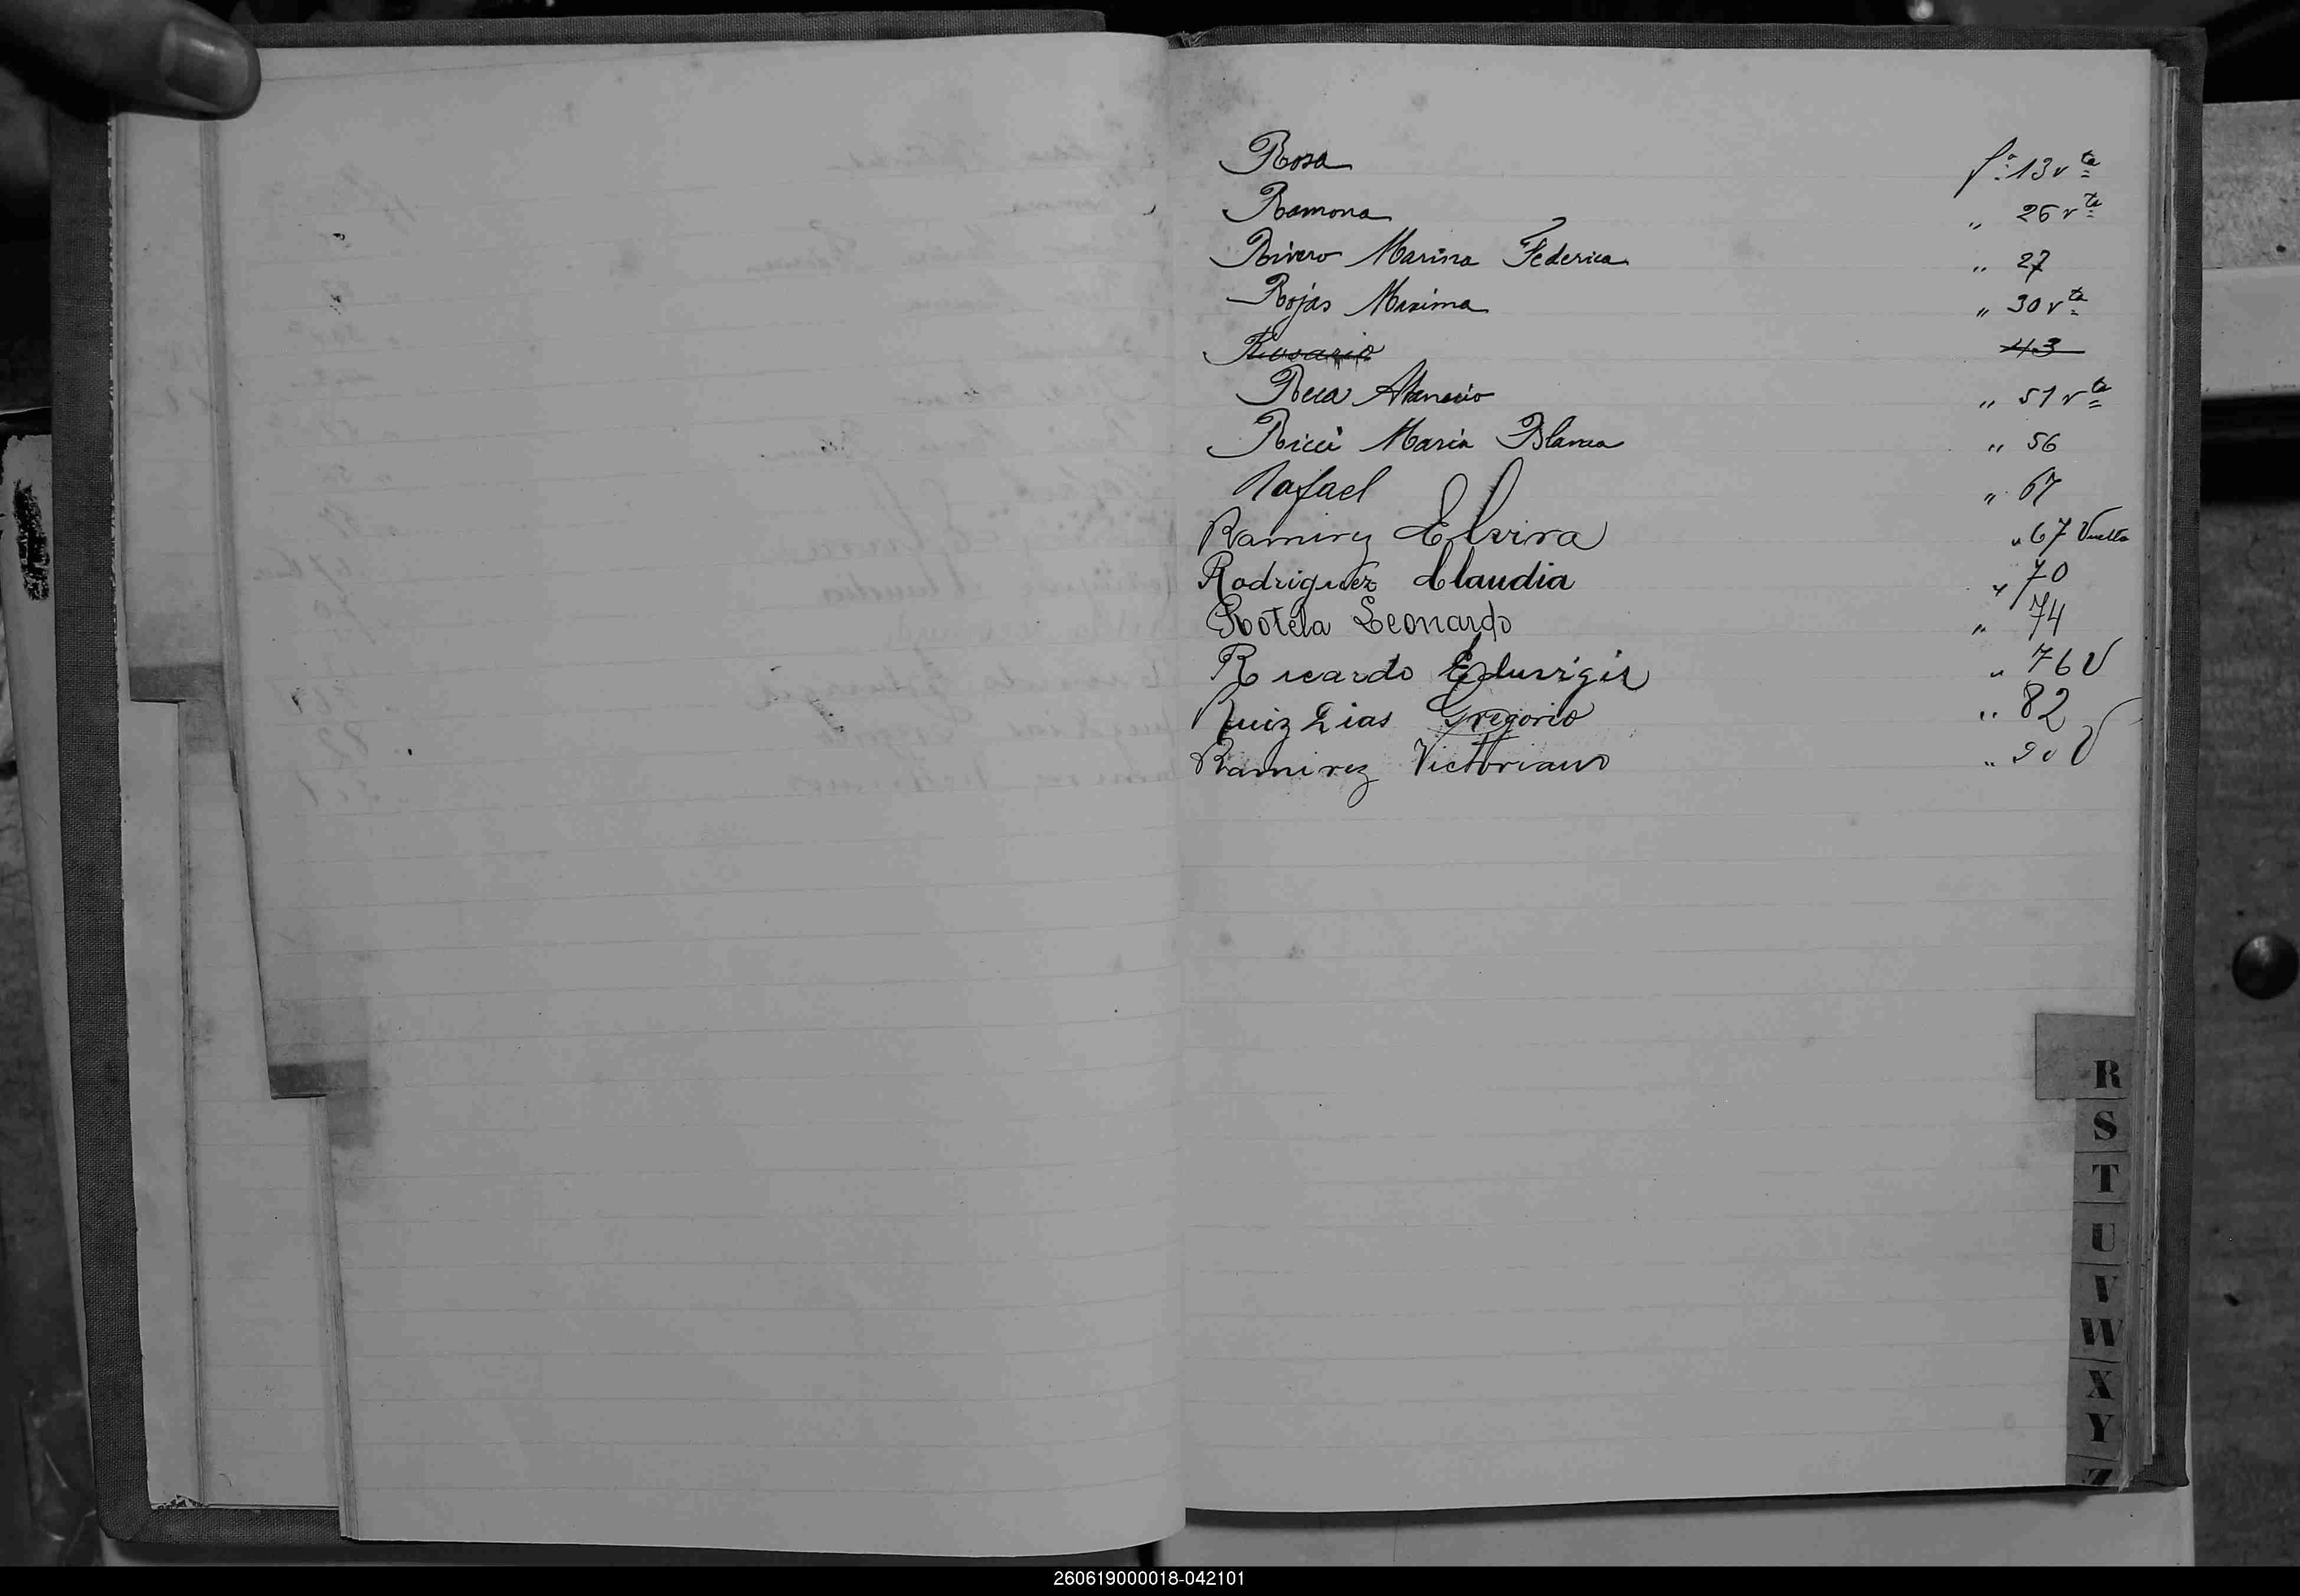 Rosa fº 13 vta
Ramona " 26 vta
Rivero Marina Federica " 27
Rojas Maxima " 30 vta
Rosario 43
Reca Atanacio " 51 vta
Ricci Maria Blanca " 56
Rafael " 67
Ramirez Elvira " 67 Vuelta
Rodriguez Claudia " 70
Rotela Leonardo " 74
Ricardo Eduvigis " 76 V
Ruiz Dias Gregorio " 82
Ramirez Victoriano " 90 V
R
S
T
U
V
W
X
Y
Z
260619000018-042101